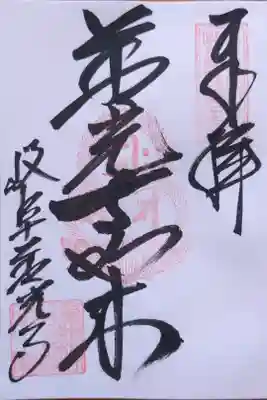 奉拝
善光如来
岐阜善光寺